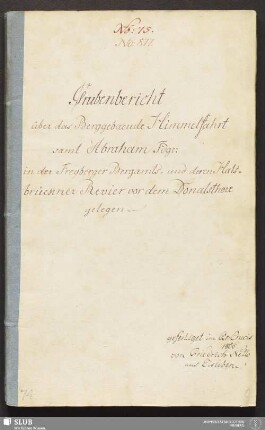 No: 15.
Grubenbericht
über das Berggebäude Himmelfahrt
samt Abraham Fdgr.
in der Freyberger Bergamts- und deren Hals-
brückner Revier vor dem Donatsthore
gelegen
gefertiget im
von Friedrich
aus Eisleben.
SLUB